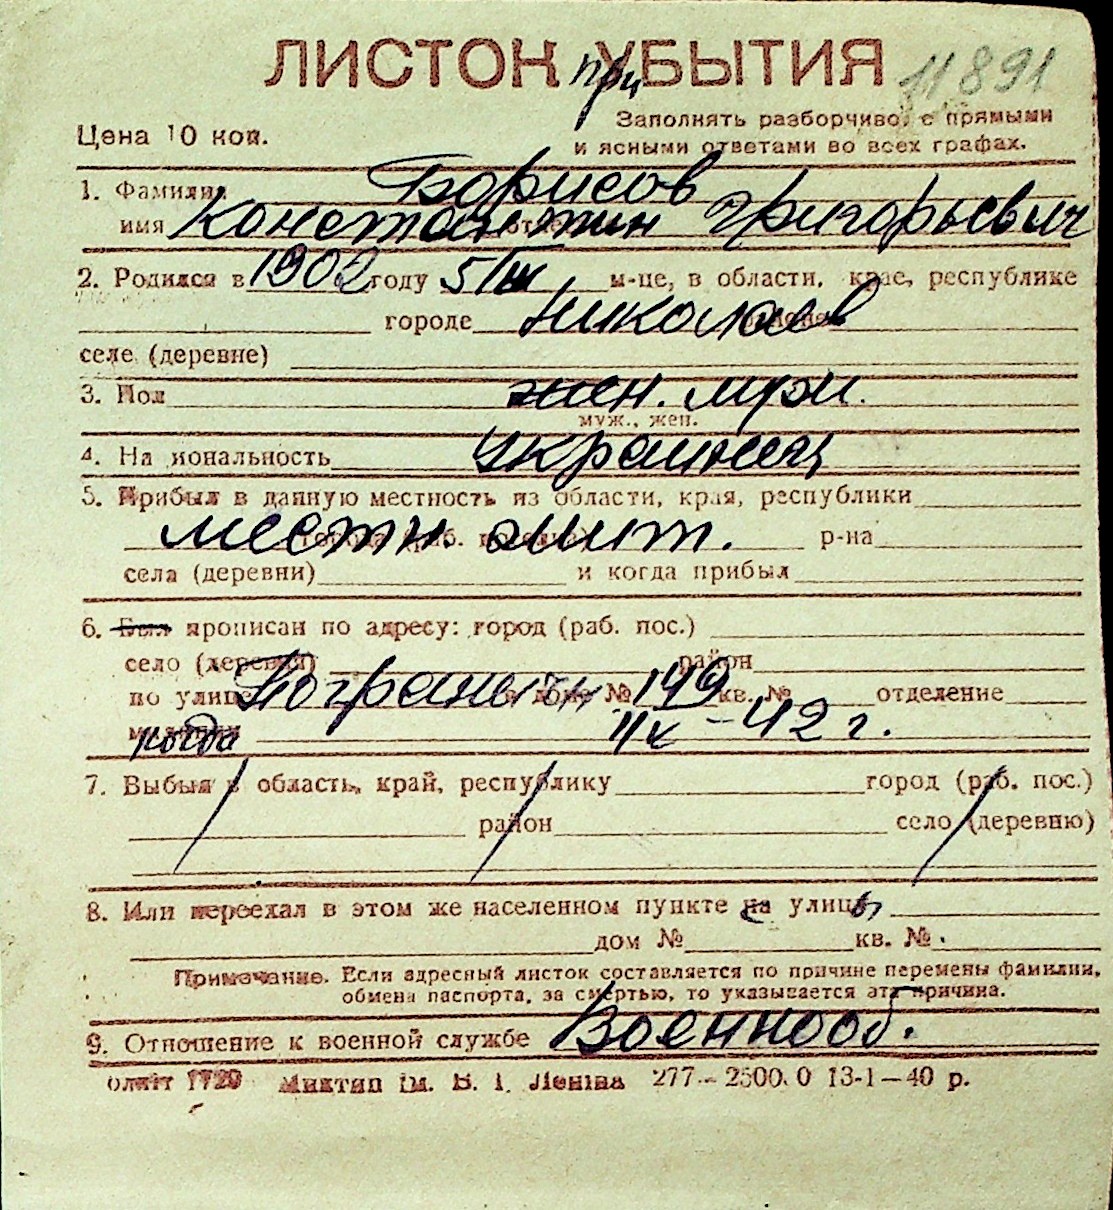 ЛИСТОК при УБЫТИЯ 11891
Цена 10 коп.
Заполнять разборчиво, с прямыми
и ясными ответами во всех графах.
1. Фамилия Борисов
имя Константин Григорьевич
2. Родился в 1902 году 5/III м-це, в области, крае, республике
городе Николаев
селе (деревне)
3. Пол жен. муж.
муж., жен.
4. На иональность украинец
5. Прибыл в данную местность из области, края, республики
местн. жит. р-на
села (деревни) и когда прибыл
6. Был прописан по адресу: город (раб. пос.)
село (деревня) район
по улице Погранычн дом № 149 кв. № отделение
когда 11/X-42 г.
7. Выбыл в область, край, республику город (раб. пос.)
район село (деревню)
8. Или переехал в этом же населенном пункте с улицы
дом № кв. №
Примечание. Если адресный листок составляется по причине перемены фамилии,
обмена паспорта, за смертью, то указывается эта причина.
9. Отношение к военной службе Военнооб.
Облліт 1729 Миктип ім. В. І. Леніна 277—2500.0 13-1—40 р.